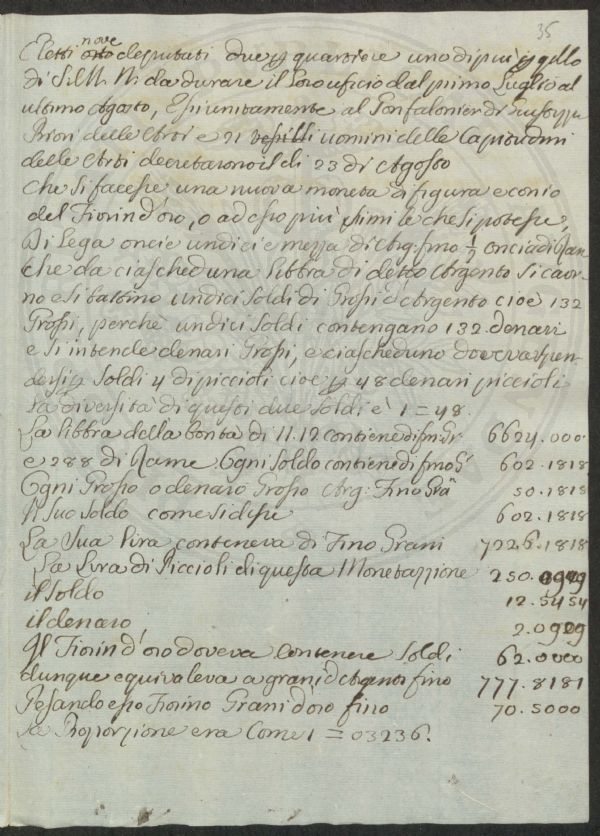 35
nove
Eletti otto deputati due p quartiere uno di più p quello
di S. M. N. da durare il loro uficio dal primo Luglio al
ultimo Agosto, Essi unitamente al Gonfalonier di Giustizia
Priori delle Arti e 21 uomini delle Capitudini
delle Arti decretarono il di 23 di Agosto
Che si facesse una nuova moneta di figura e conio
del Fiorin d'oro, o ad esso più simile che si potesse,
Di Lega oncie undici e mezza di Arg: fino ½ oncia di Ram
che da ciascheduna libbra di detto Argento si cavi-
no e si battino undici Soldi di Grossi d'Argento cioè 132
Grossi, perchè undici Soldi contengano 132. denari
e si intende denari Grossi, e ciascheduno doveva spen-
dersi p Soldi 4 di piccioli cioè p 48 denari piccioli
La diversità di questi due soldi è 1 = 48.
La libbra della bontà di 11.12 contiene di fin: Gr 6624.000
e 288 di Rame. Ogni Soldo contiene di fino G 602.1818
Ogni Grosso o denaro Grosso Arg: Fino Gra 50.1818
Il suo soldo come si disse 602.1818
La Sua lira conteneva di Fino Grani 7226.1818
La Lira di Piccioli di questa Monetazzione 250.0909
il Soldo 12.5454
il denaro 2.0909
Il Fiorin d'oro doveva contenere Soldi 62.0000
dunque equivaleva a grani d'Argento fino 777.8181
Pesando esso Fiorino Grani d'oro fino 70.5000
la Proporzione era Come 1 = 03236.